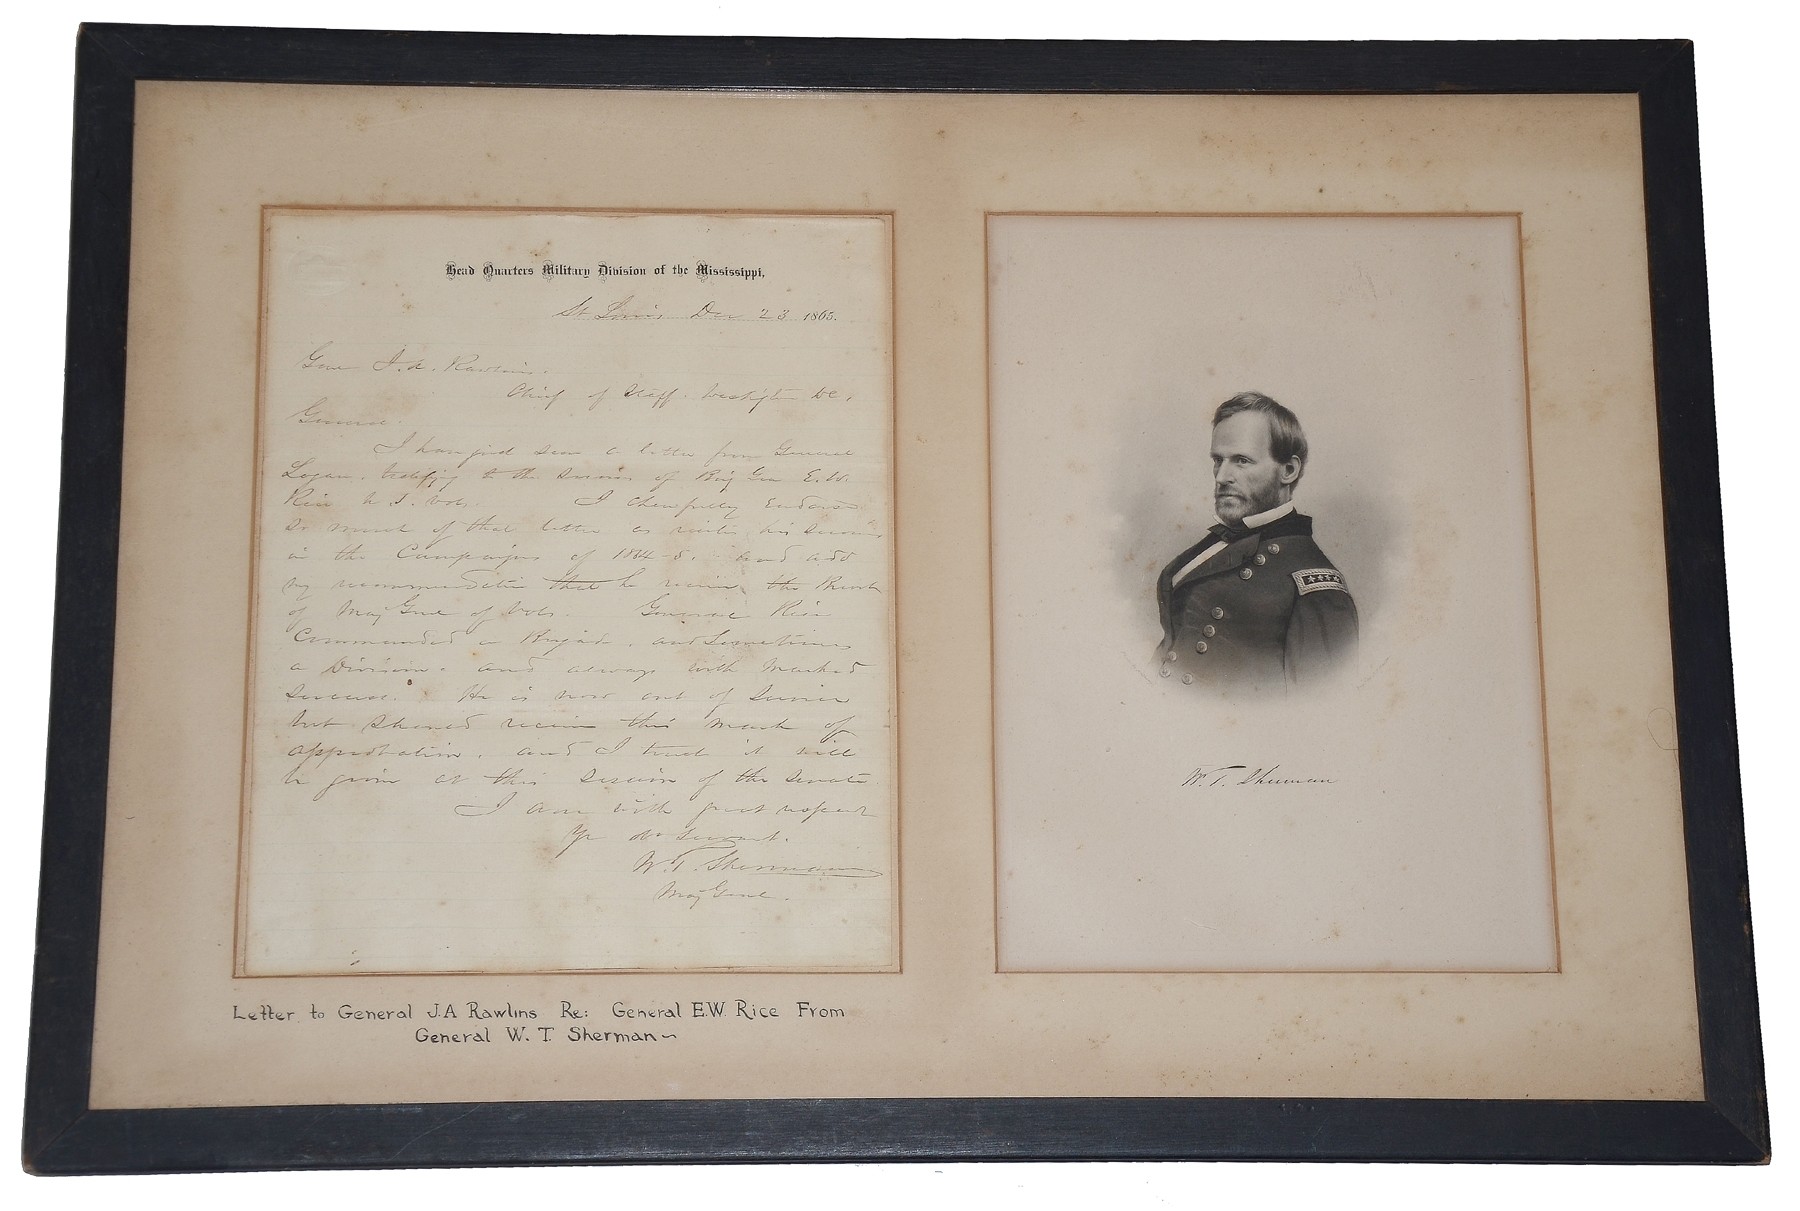 Head Quarters Military Division of the Mississippi,
St Louis Dec 23 1865.
Genl J. A. Rawlins.
Chief of Staff. Washgtn DC.
General.
I have just seen a letter from General
Logan, testifying to the services of Brig Gen E. W.
Rice U. S. Vols. I cheerfully endorse
so much of that letter as recites his services
in the Campaigns of 1864-5. and add
my recommendation that he receive the Brevet
of Maj Genl of Vols. General Rice
Commanded a Brigade, and sometimes
a Division. and always with marked
success. He is now out of service
but should receive this mark of
approbation, and I trust it will
be given at this session of the Senate.
I am with great respect
Yr obt servant.
W. T. Sherman
Maj Genl.
W. T. Sherman
Letter to General J.A Rawlins Re: General E.W. Rice From
General W. T. Sherman~